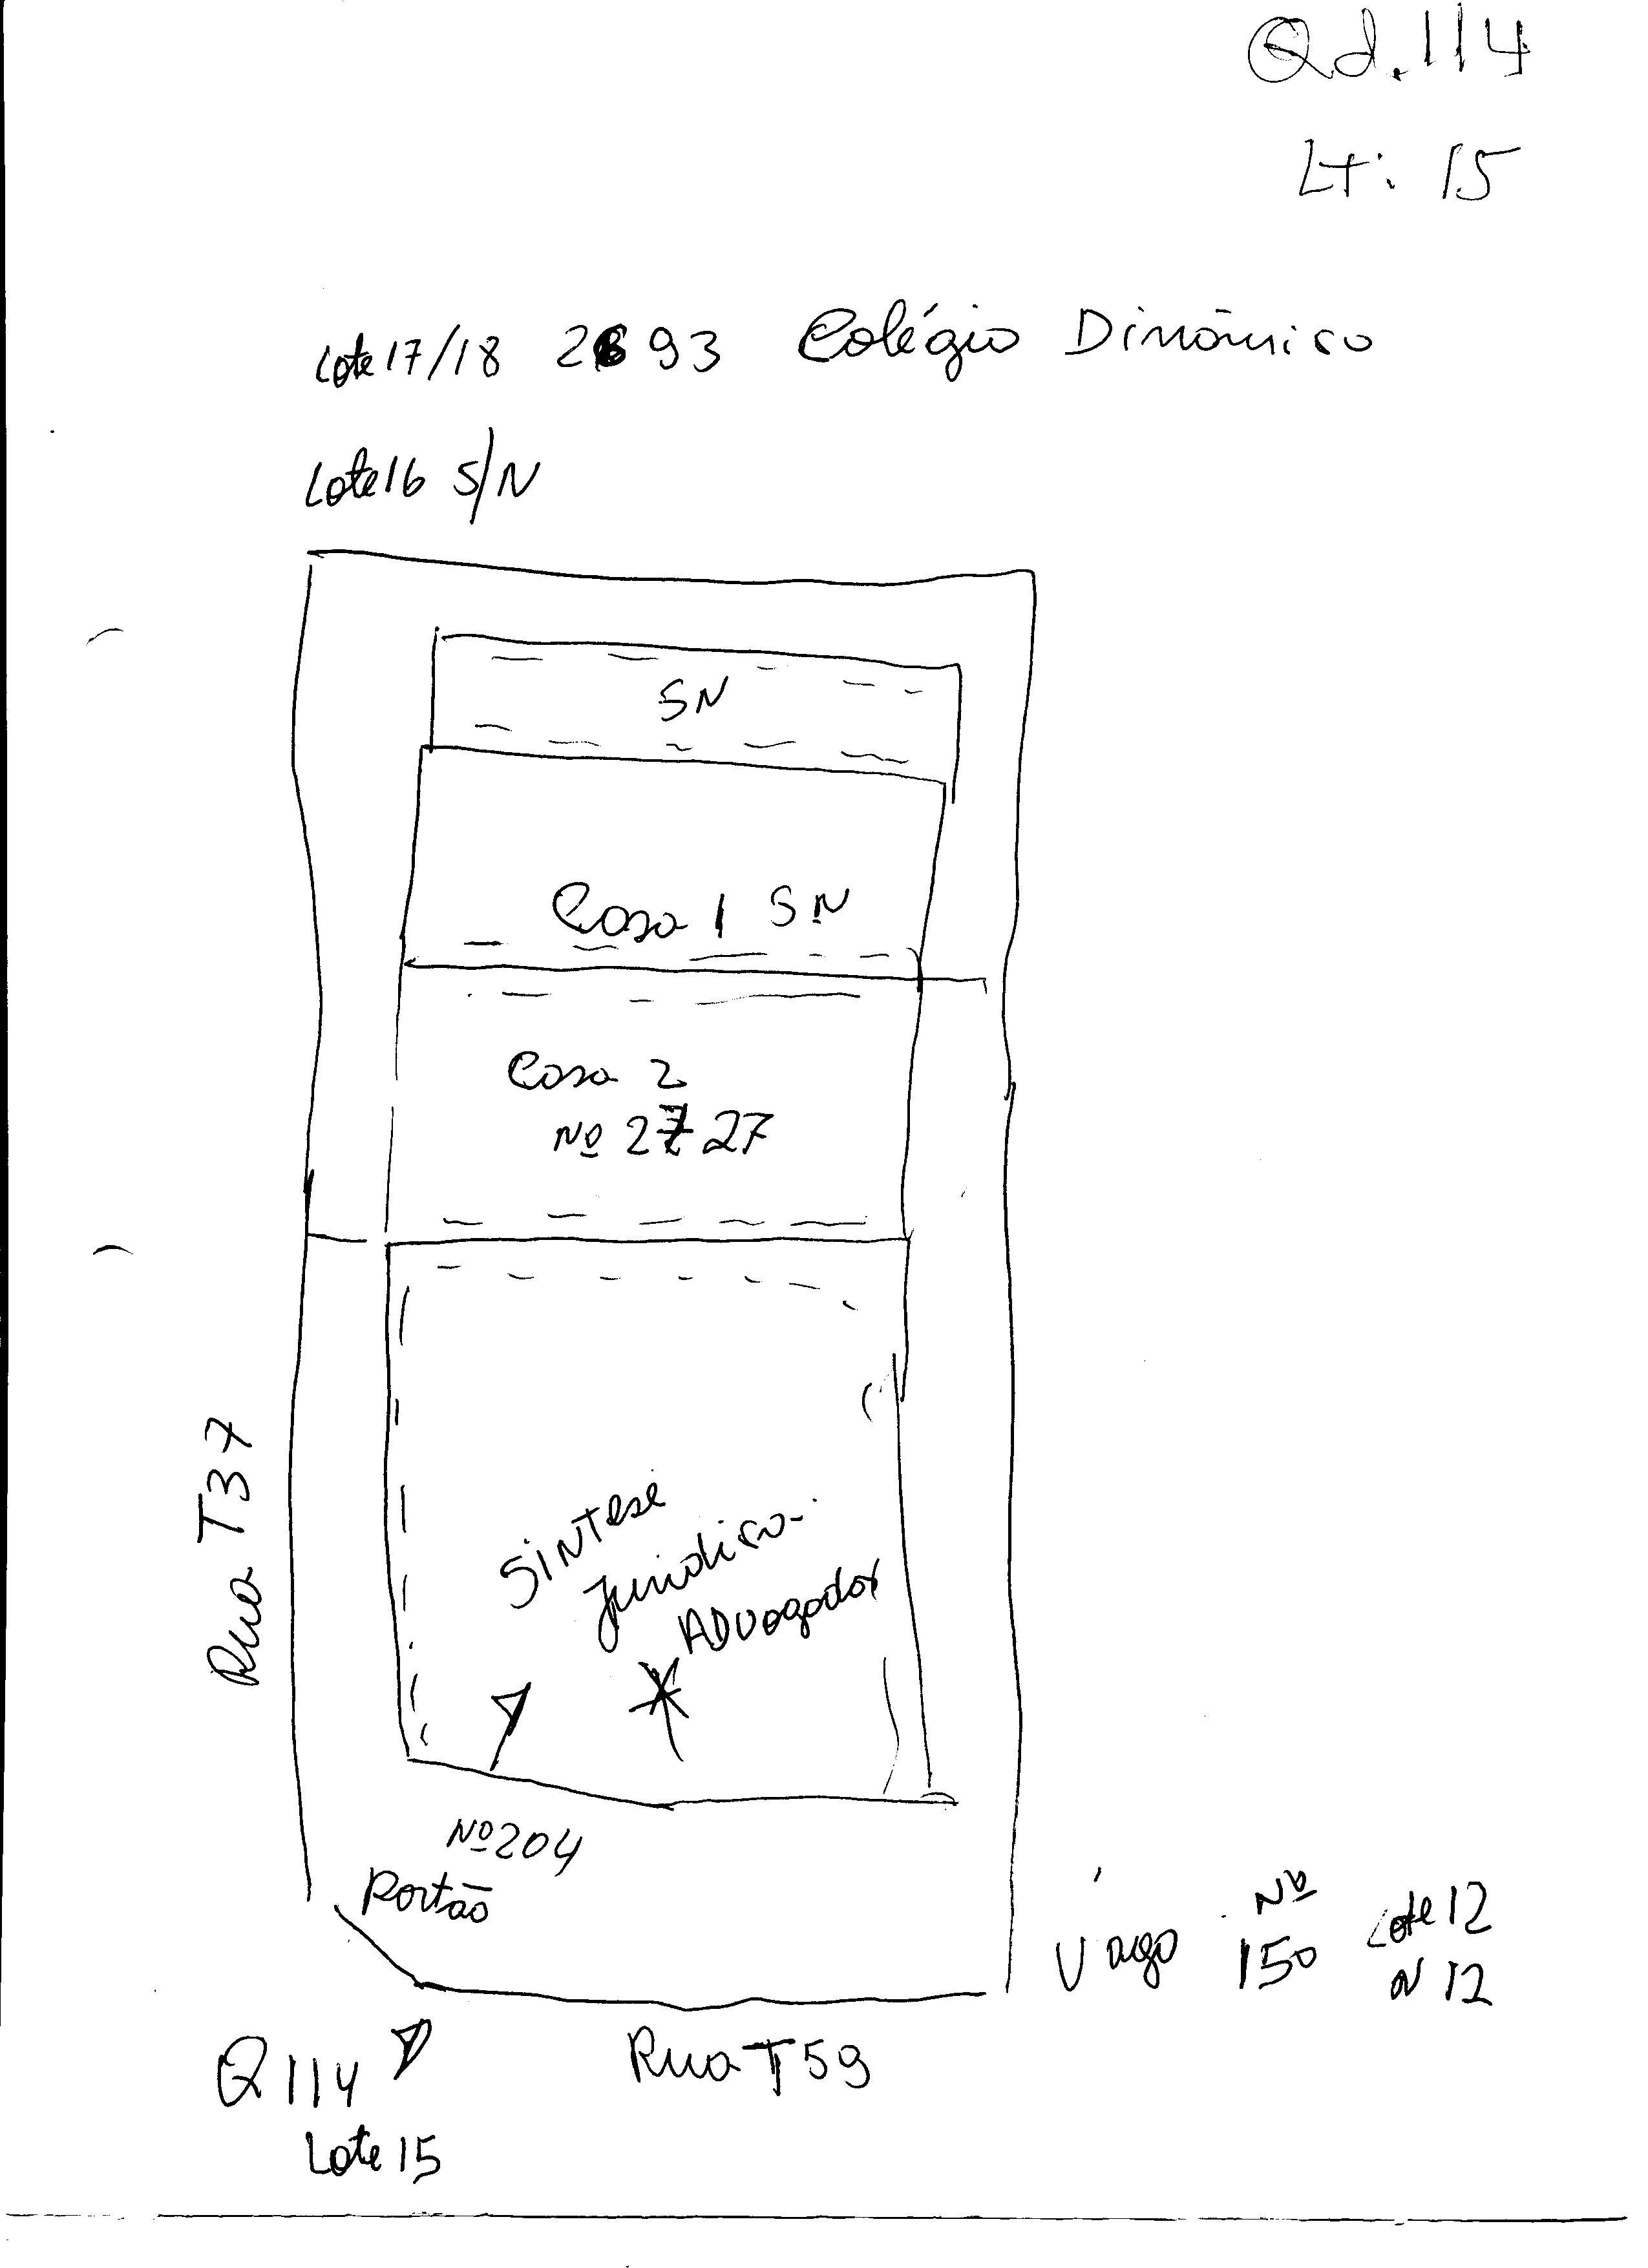 Qd. 114
Lt: 15
Lote 17/18 2693 Colégio Dinâmico
Lote 16 S/N
SN
Casa 1 SN
Casa 2
Nº 2727
Rua T37
Sintese
Juridica
Advogados
Nº 204
Portão
Vago Nº 150 Lote 12
N 12
Q 114
Lote 15
Rua T59